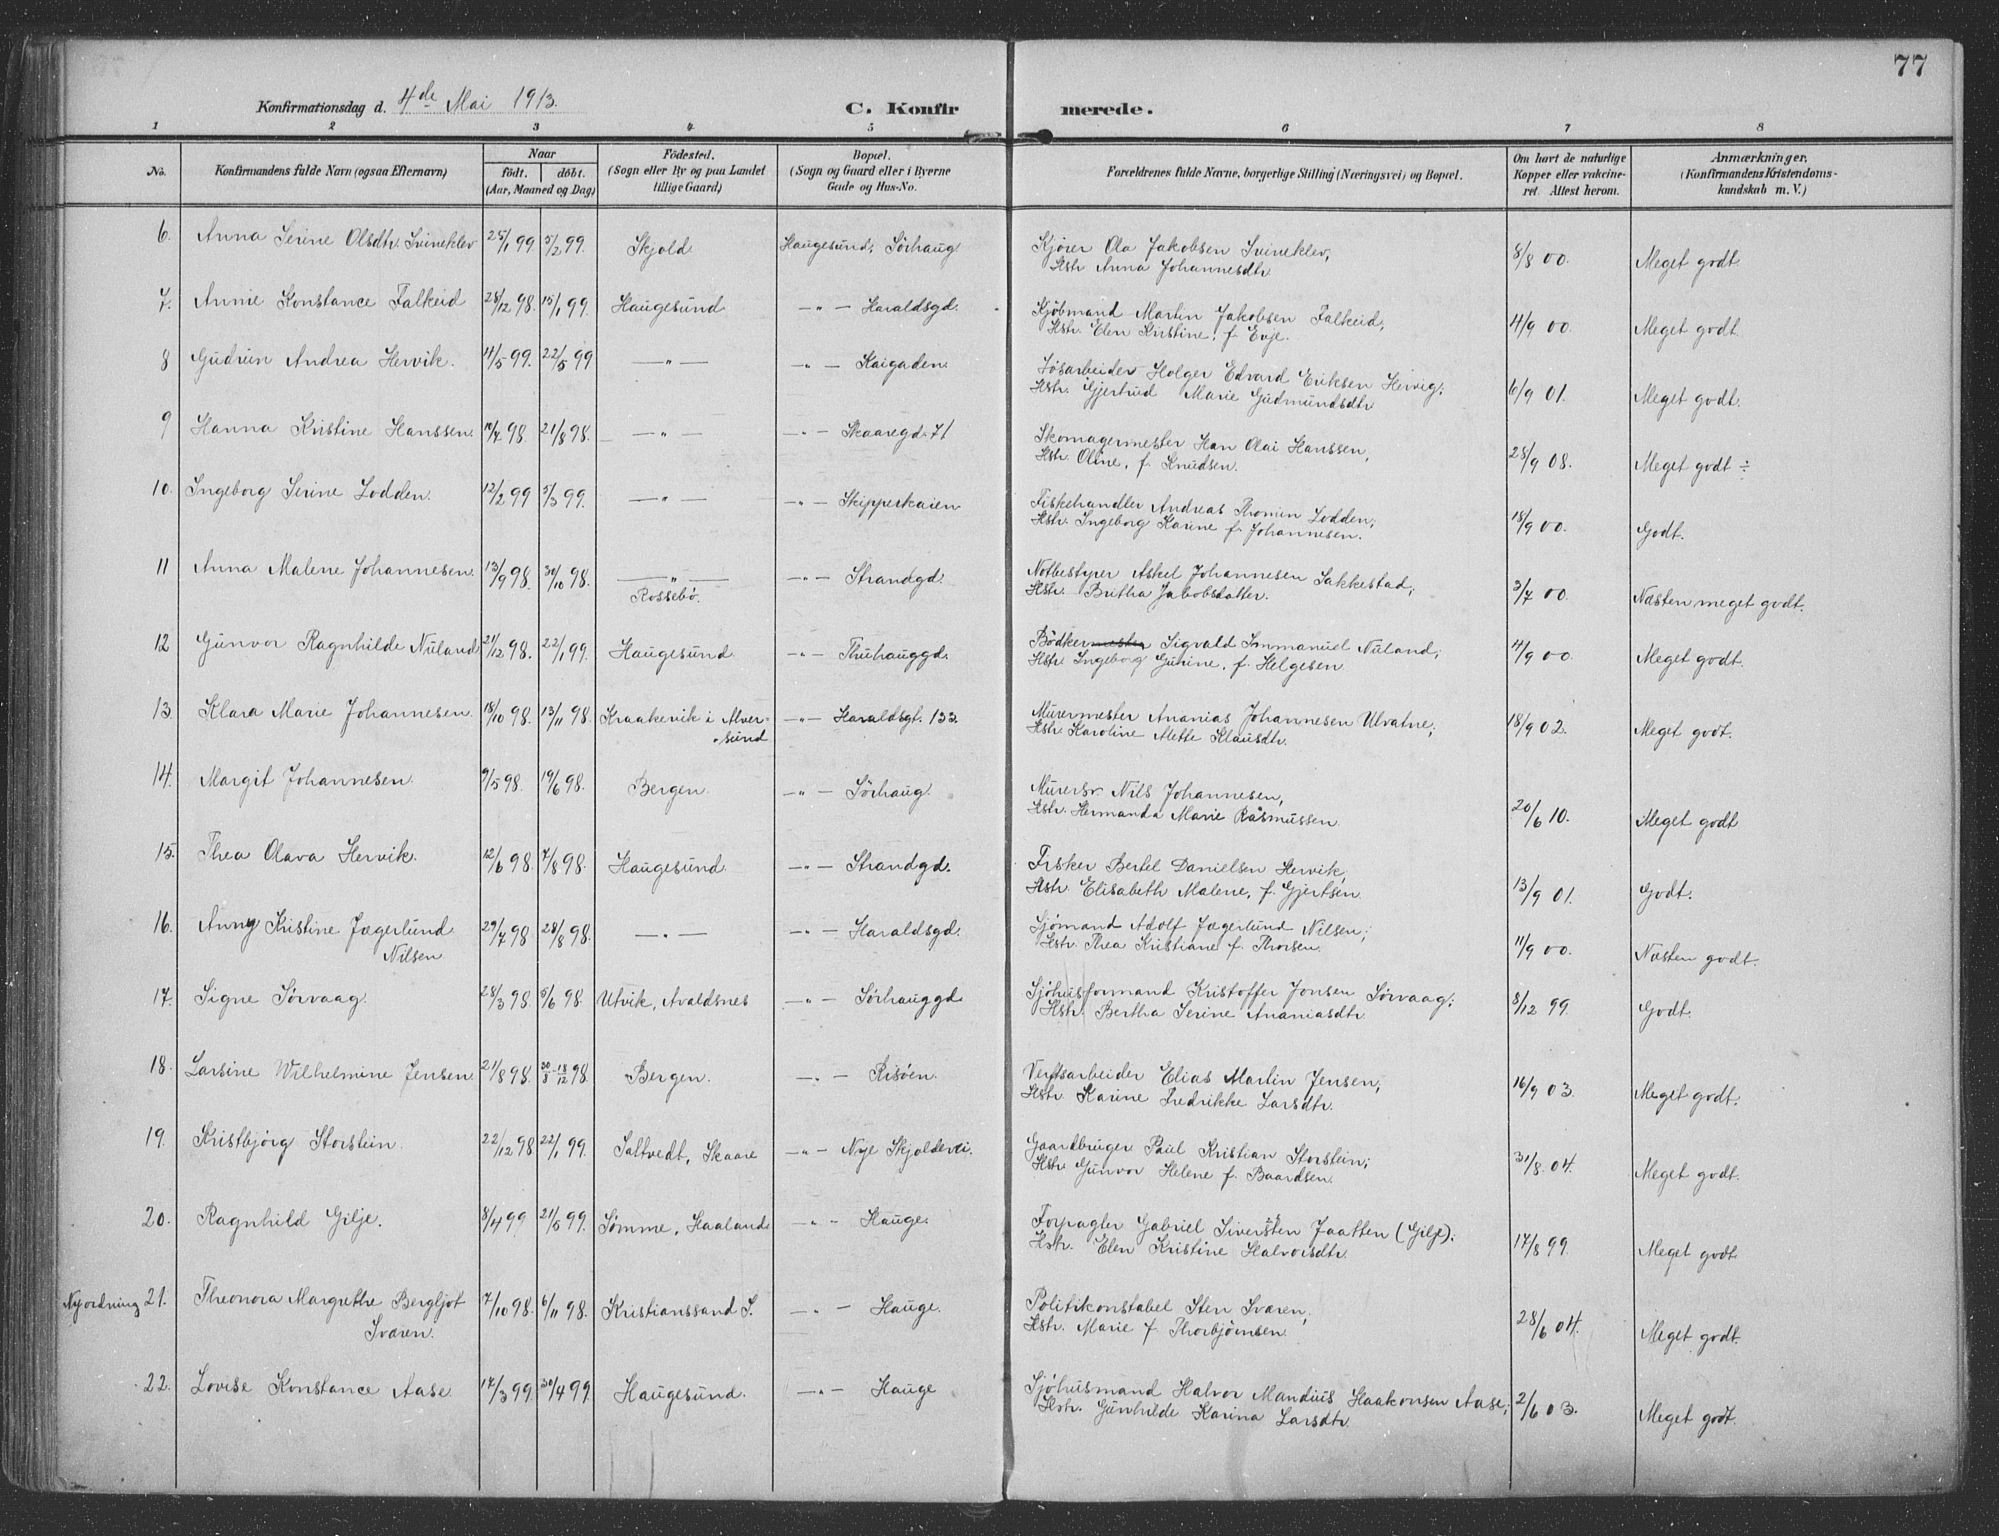 77
Konfirmationsdag d. 4de Mai 1913.
C. Konfirmerede.
1 2 3 4 5 6 7 8
No. Konfirmandens fulde Navn (ogsaa Efternavn) Naar født. døbt. (Aar, Maaned og Dag) Fødested. (Sogn eller By og paa Landet tillige Gaard) Bopæl. (Sogn og Gaard eller i Byerne Gade og Hus-No. Forældrenes fulde Navne, borgerlige Stilling (Næringsvei) og Bopæl. Om havt de naturlige Kopper eller vaccineret. Attest herom. Anmærkninger. (Konfirmandens Kristendomskundskab m. V.)
6. Anna Serine Olsdtr. Svineklev 25/1 99 5/2 99. Skjold. Haugesund, Sørhaug Kjører Ola Jakobsen Svineklev, 8/8 00. Meget godt.
Hstr. Anna Johannesdtr.
7. Annie Konstance Falkeid 28/12 98. 15/1 99. Haugesund -„- Haraldsgd. Kjøbmand Martin Jakobsen Falkeid, 4/9 00. Meget godt.
Hstr. Elen Kristine, f. Evje.
8 Gudrun Andrea Hervik. 4/5 99. 22/5 99 -„- -„- Kaigaden. Løsarbeider Holger Edvard Eriksen Hervig, 6/9 01. Meget godt.
Hstr. Gjertrud Marie Gudmundsdtr
9 Hanna Kristine Hanssen. 10/7 98. 21/8 98. -„- -„- Skaaregd. 71 Skomagermester Han Olai Hanssen, 28/9 08. Meget godt ÷
Hstr. Oline, f. Knudsen.
10. Ingeborg Serine Lodden. 12/2 99 5/3 99. -„- -„- Skipperkaien Fiskehandler Andreas Thomin Lodden, 18/9 00. Godt.
Hstr. Ingeborg Karine f. Johannesen.
11 Anna Malene Johannesen. 13/9 98. 30/10 98. -„- Rossebø. -„- Strandgd. Notbestyrer Askel Johannesen Sakkestad; 3/7 00. Næsten meget godt.
Hstr. Britha Jakobsdatter.
12 Gunvor Ragnhilde Nuland 21/12 98. 22/1 99. Haugesund -„- Thuhauggd. Bødkermester Sigvald Immanuel Nuland; 4/9 00. Meget godt.
Hstr. Ingeborg Gurine, f. Helgesen
13. Klara Marie Johannesen. 18/10 98. 13/11 98. Kraakevik i Alver- -„- Haraldsgt. 133. Murermester Ananias Johannesen Ulvatne; 18/9 02. Meget godt.
sund Hstr. Karoline Alette Klausdtr.
14. Margit Johannesen. 9/5 98. 19/6 98. Bergen. -„- Sørhaug. Murersv. Nils Johannesen, 20/6 10. Meget godt
Hstr. Hermanda Marie Rasmussen.
15. Thea Olava Hervik. 12/6 98. 7/8 98. Haugesund. -„- Strandgd. Fisker Bertel Danielsen Hervik, 13/9 01. Godt.
Hstr. Elisabeth Malene, f. Gjertsen.
16. Anny Kristine Jægerlund 29/7 98. 28/8 98. -„- -„- Haraldsgd. Sjømand Adolf Jægerlund Nilsen; 11/9 00. Næsten godt.
Nilsen Hstr. Thea Kristiane f. Thorsen.
17. Signe Sørvaag. 28/3 98. 5/6 98. Utvik, Avaldsnes -„- Sørhauggd Sjøhusformand Kristoffer Jonsen Sørvaag; 8/12 99. Godt.
Hstr. Bertha Serine Ananiasdtr.
18. Larsine Wilhelmine Jensen. 21/8 98. 30/8 - 18/12 98. Bergen. -„- Risøen. Verftsarbeider Elias Martin Jensen, 16/9 03. Meget godt.
Hstr. Karine Fredrikke Larsdtr.
19. Kristbjørg Storstein. 22/12 98. 22/1 99. Saltvedt, Skaare -„- Nye Skjoldevei. Gaardbruger Paul Kristian Storstein; 31/8 04. Meget godt.
Hstr. Gunvor Helene f. Baardsen.
20. Ragnhild Gilje. 8/4 99 21/5 99. Sømme, Haaland -„- Hauge. Forpagter Gabriel Siversten Jaatten (Gilje). 17/8 99. Meget godt.
Hstr. Elen Kristine Halvorsdtr.
Nyordning 21. Theonora Margrethe Bergljot 7/10 98. 6/11 98. Kristianssand S. -„- Hauge. Politikonstabel Sten Svaren; 28/6 04. Meget godt.
Svaren. Hstr. Marie f. Thorbjørnsen.
22. Lovise Konstance Aase. 17/3 99. 30/4 99. Haugesund. -„- Hauge Sjøhusmand Halvor Mandius Haakonsen Aase; 2/6 03. Meget godt.
Hstr. Gunhilde Karina Larsdtr.